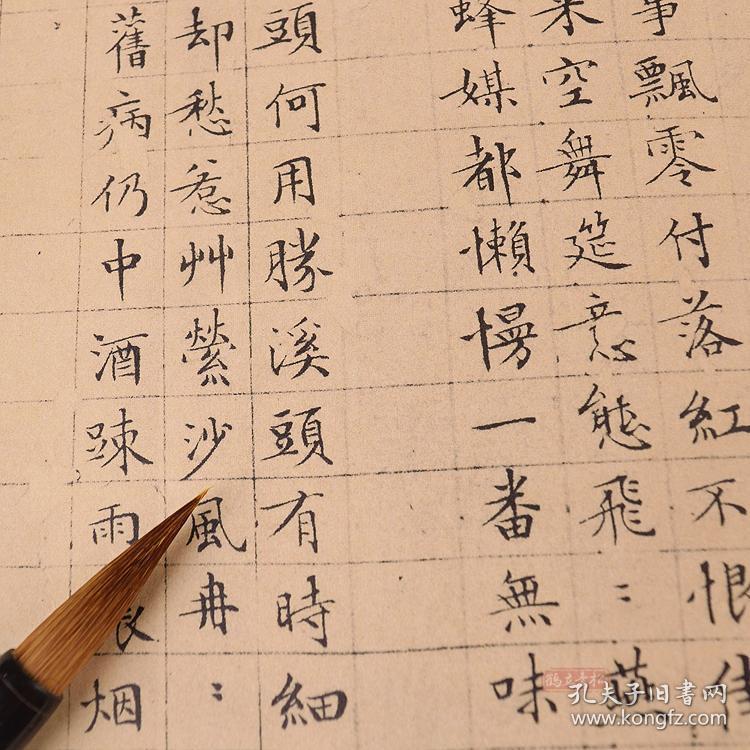 事飄零付落紅不恨
空舞筵意態飛〻燕
蜂媒都懶慢一番無味
頭何用勝溪頭有時細
却愁惹艸縈沙風冉〻
舊病仍中酒踈雨烟
孔夫子旧书网
www.kongfz.com